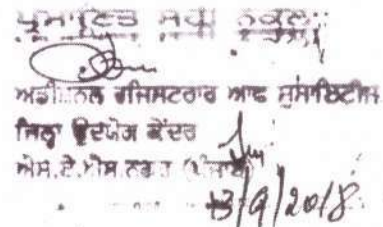 ਪ੍ਰਮਾਣਿਤ ਸਹੀ ਨਕਲ
ਅਡੀਸ਼ਨਲ ਰਜਿਸਟਰਾਰ ਆਫ ਸੁਸਾਇਟੀਜ਼
ਜਿਲ੍ਹਾ ਉਦਯੋਗ ਕੇਂਦਰ
ਐਸ.ਏ.ਐਸ.ਨਗਰ (ਪੰਜਾਬ)
13/9/2018